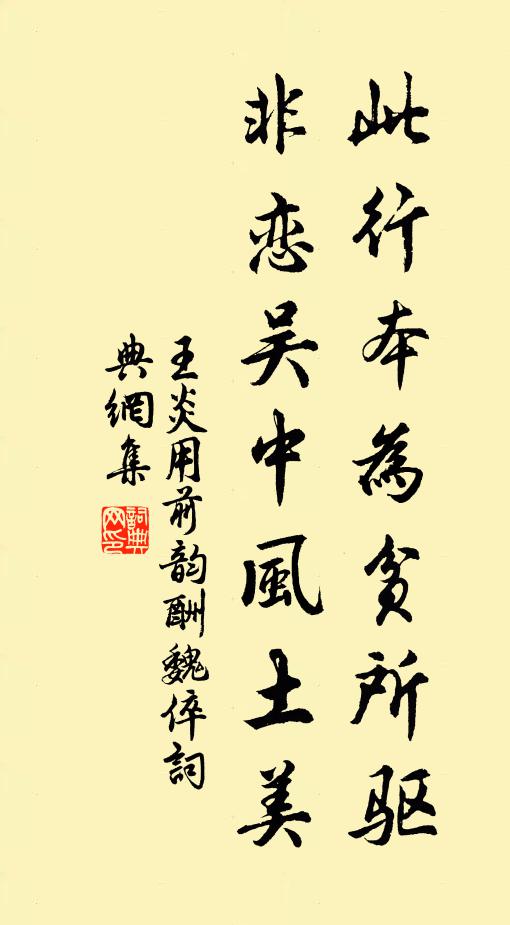 此行本為貧所驱
非恋吴中風土美
王炎用前韵酬魏倅詞
典網集
詞典
网印